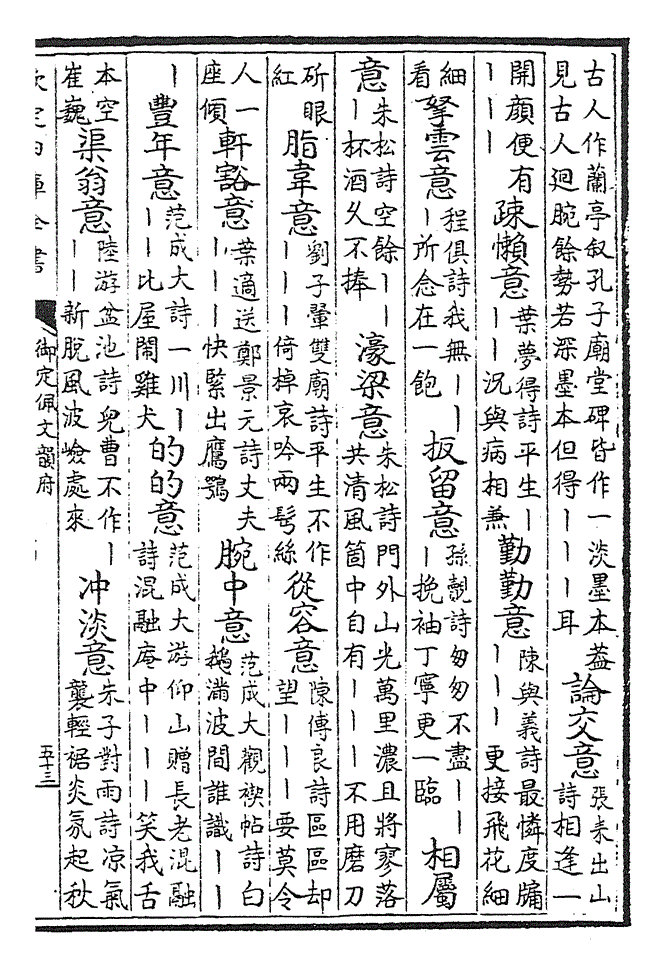 古人作蘭亭叙孔子廟堂碑皆作一淡墨本葢
見古人廻腕餘勢若深墨本但得丨丨丨耳
論交意
張耒出山
詩相逢一
開顔便有
丨丨丨
疎懶意
葉夢得詩平生丨
丨丨况與病相兼
勤勤意
陳與義詩最憐度牖
丨丨丨更接飛花細
細
看
拏雲意
程俱詩我無丨丨
丨所念在一飽
扳留意
孫覿詩匆匆不盡丨丨
丨挽袖丁寧更一臨
相屬
意
朱松詩空餘丨丨
丨杯酒久不捧
濠梁意
朱松詩門外山光萬里濃且將寥落
共清風箇中自有丨丨丨不用磨刀
斫眼
紅
脂韋意
劉子翬雙廟詩平生不作
丨丨丨倚棹哀吟兩髩絲
從容意
陳傅良詩區區却
望丨丨丨要莫令
人一
座傾
軒豁意
葉適送鄭景元詩丈夫
丨丨丨快緊出鷹鶚
腕中意
范成大觀禊帖詩白
鵝滿波間誰識丨丨
丨
豐年意
范成大詩一川丨
丨丨比屋鬧雞犬
的的意
范成大游仰山贈長老混融
詩混融庵中丨丨丨笑我舌
本空
崔巍
渠翁意
陸游盆池詩兒曹不作丨
丨丨新脫風波嶮處來
冲淡意
朱子對雨詩凉氣
襲輕裾炎氛起秋
欽定四庫全書
御定佩文韻府
五十三